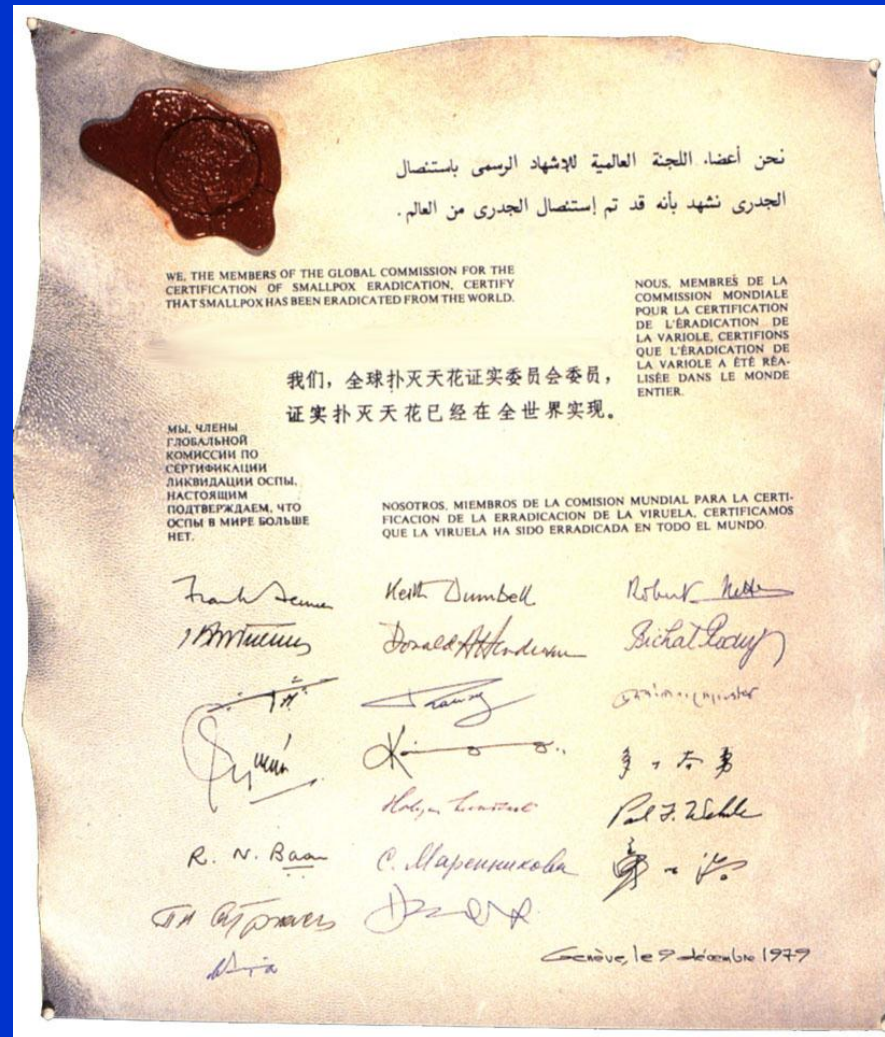 نحن أعضاء اللجنة العالمية للاشهاد الرسمى باستئصال
الجدرى نشهد بأنه قد تم إستئصال الجدرى من العالم.
WE, THE MEMBERS OF THE GLOBAL COMMISSION FOR THE
CERTIFICATION OF SMALLPOX ERADICATION, CERTIFY
THAT SMALLPOX HAS BEEN ERADICATED FROM THE WORLD.
NOUS, MEMBRES DE LA
COMMISSION MONDIALE
POUR LA CERTIFICATION
DE L'ÉRADICATION DE
LA VARIOLE, CERTIFIONS
QUE L'ÉRADICATION DE
LA VARIOLE A ÉTÉ RÉA-
LISÉE DANS LE MONDE
ENTIER.
我们，全球扑灭天花证实委员会委员，
证实扑灭天花已经在全世界实现。
МЫ, ЧЛЕНЫ
ГЛОБАЛЬНОЙ
КОМИССИИ ПО
СЕРТИФИКАЦИИ
ЛИКВИДАЦИИ ОСПЫ,
НАСТОЯЩИМ
ПОДТВЕРЖДАЕМ, ЧТО
ОСПЫ В МИРЕ БОЛЬШЕ
НЕТ.
NOSOTROS, MIEMBROS DE LA COMISION MUNDIAL PARA LA CERTI-
FICACION DE LA ERRADICACION DE LA VIRUELA, CERTIFICAMOS
QUE LA VIRUELA HA SIDO ERRADICADA EN TODO EL MUNDO.
Frank Fenner Keith Dumbell Robert Netter
Donald A Henderson
Paul F. Wehrle
R. N. Basu С. Маренникова
Genève, le 9 décembre 1979